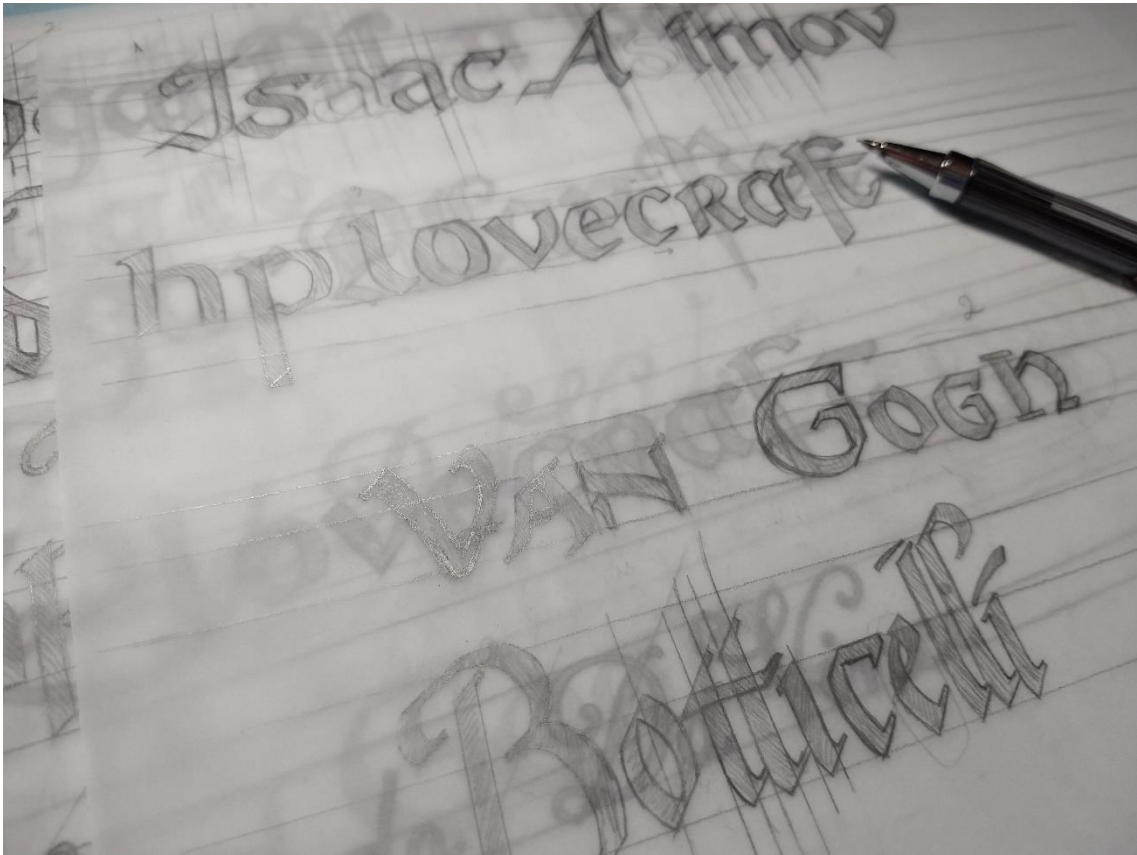 Isaac Asimov
hplovecraft
VAN GOGH
Botticelli